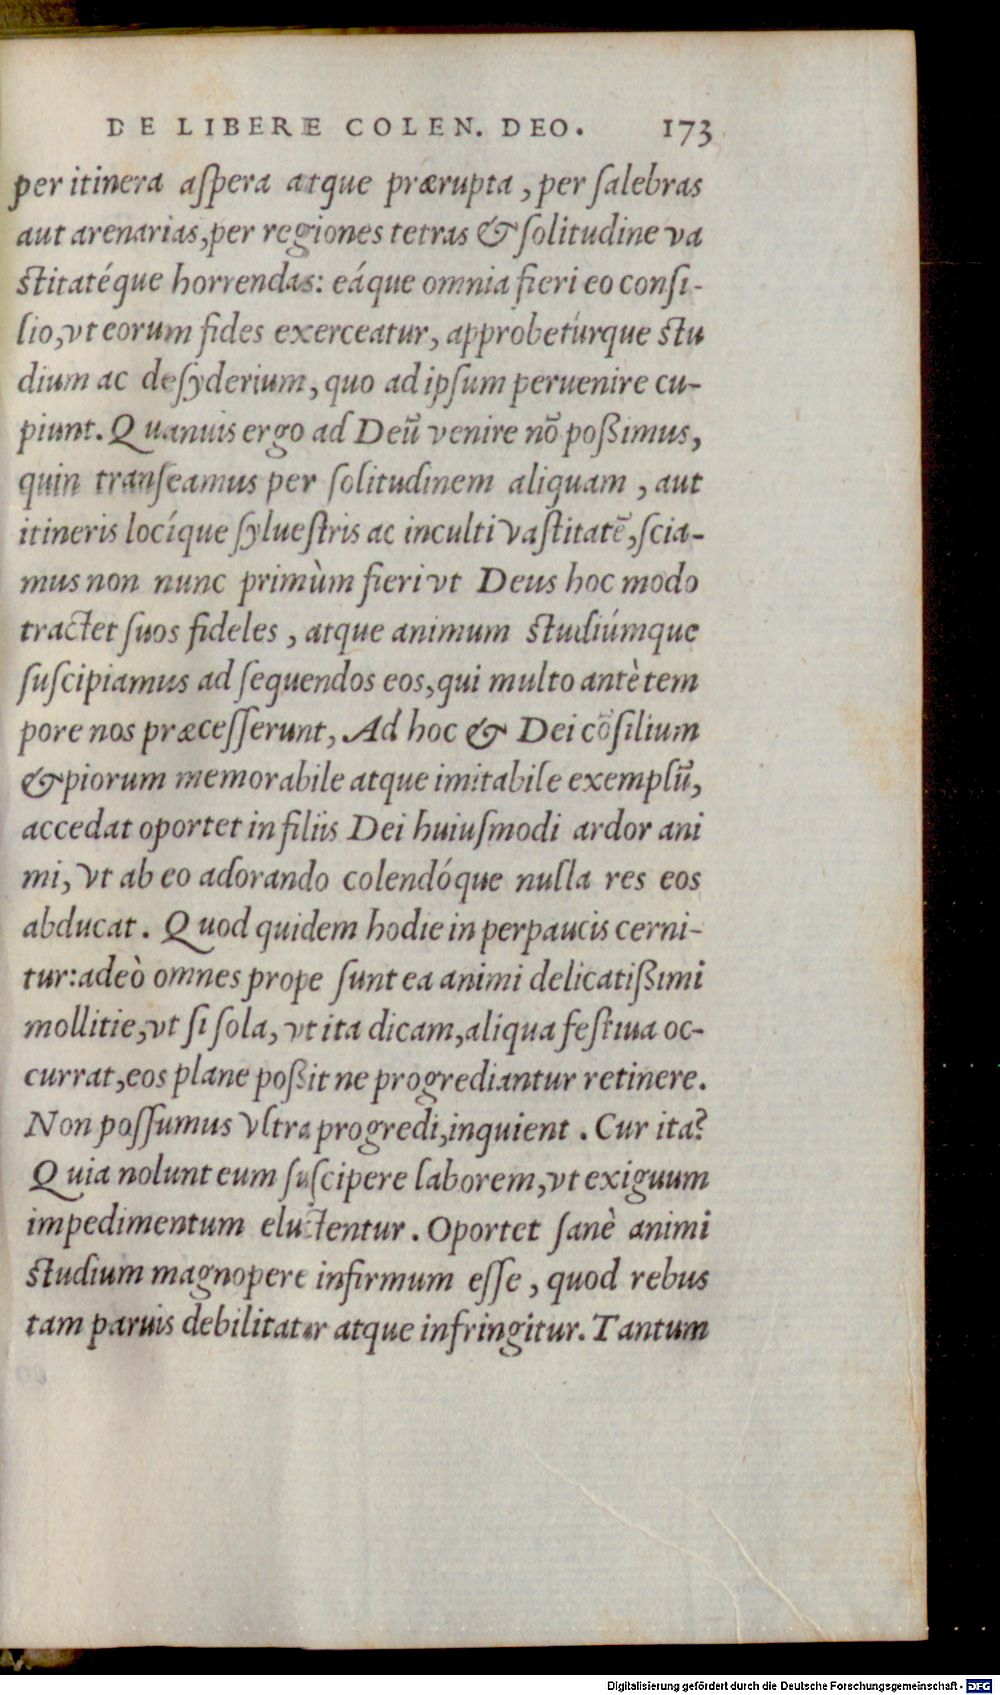 DE LIBERE COLEN. DEO. 173
per itinera aſpera atque prærupta, per ſalebras
aut arenarias, per regiones tetras & ſolitudine va
ſtitatéque horrendas: eáque omnia fieri eo conſi-
lio, vt eorum fides exerceatur, approbetúrque ſtu
dium ac deſyderium, quo ad ipſum peruenire cu-
piunt. Quanuis ergo ad Deũ venire nõ poßimus,
quin tranſeamus per ſolitudinem aliquam, aut
itineris locíque ſylueſtris ac inculti vaſtitatẽ, ſcia-
mus non nunc primùm fieri vt Deus hoc modo
tractet ſuos fideles, atque animum ſtudiúmque
ſuſcipiamus ad ſequendos eos, qui multo antè tem
pore nos præceſſerunt, Ad hoc & Dei cõſilium
& piorum memorabile atque imitabile exemplũ,
accedat oportet in filiis Dei huiuſmodi ardor ani
mi, vt ab eo adorando colendóque nulla res eos
abducat. Quod quidem hodie in perpaucis cerni-
tur: adeò omnes prope ſunt ea animi delicatißimi
mollitie, vt ſi ſola, vt ita dicam, aliqua feſtiua oc-
currat, eos plane poßit ne progrediantur retinere.
Non poſſumus vltra progredi, inquient. Cur ita?
Quia nolunt eum ſuſcipere laborem, vt exiguum
impedimentum eluctentur. Oportet ſanè animi
ſtudium magnopere infirmum eſſe, quod rebus
tam paruis debilitatur atque infringitur. Tantum
Digitalisierung gefördert durch die Deutsche Forschungsgemeinschaft - DFG